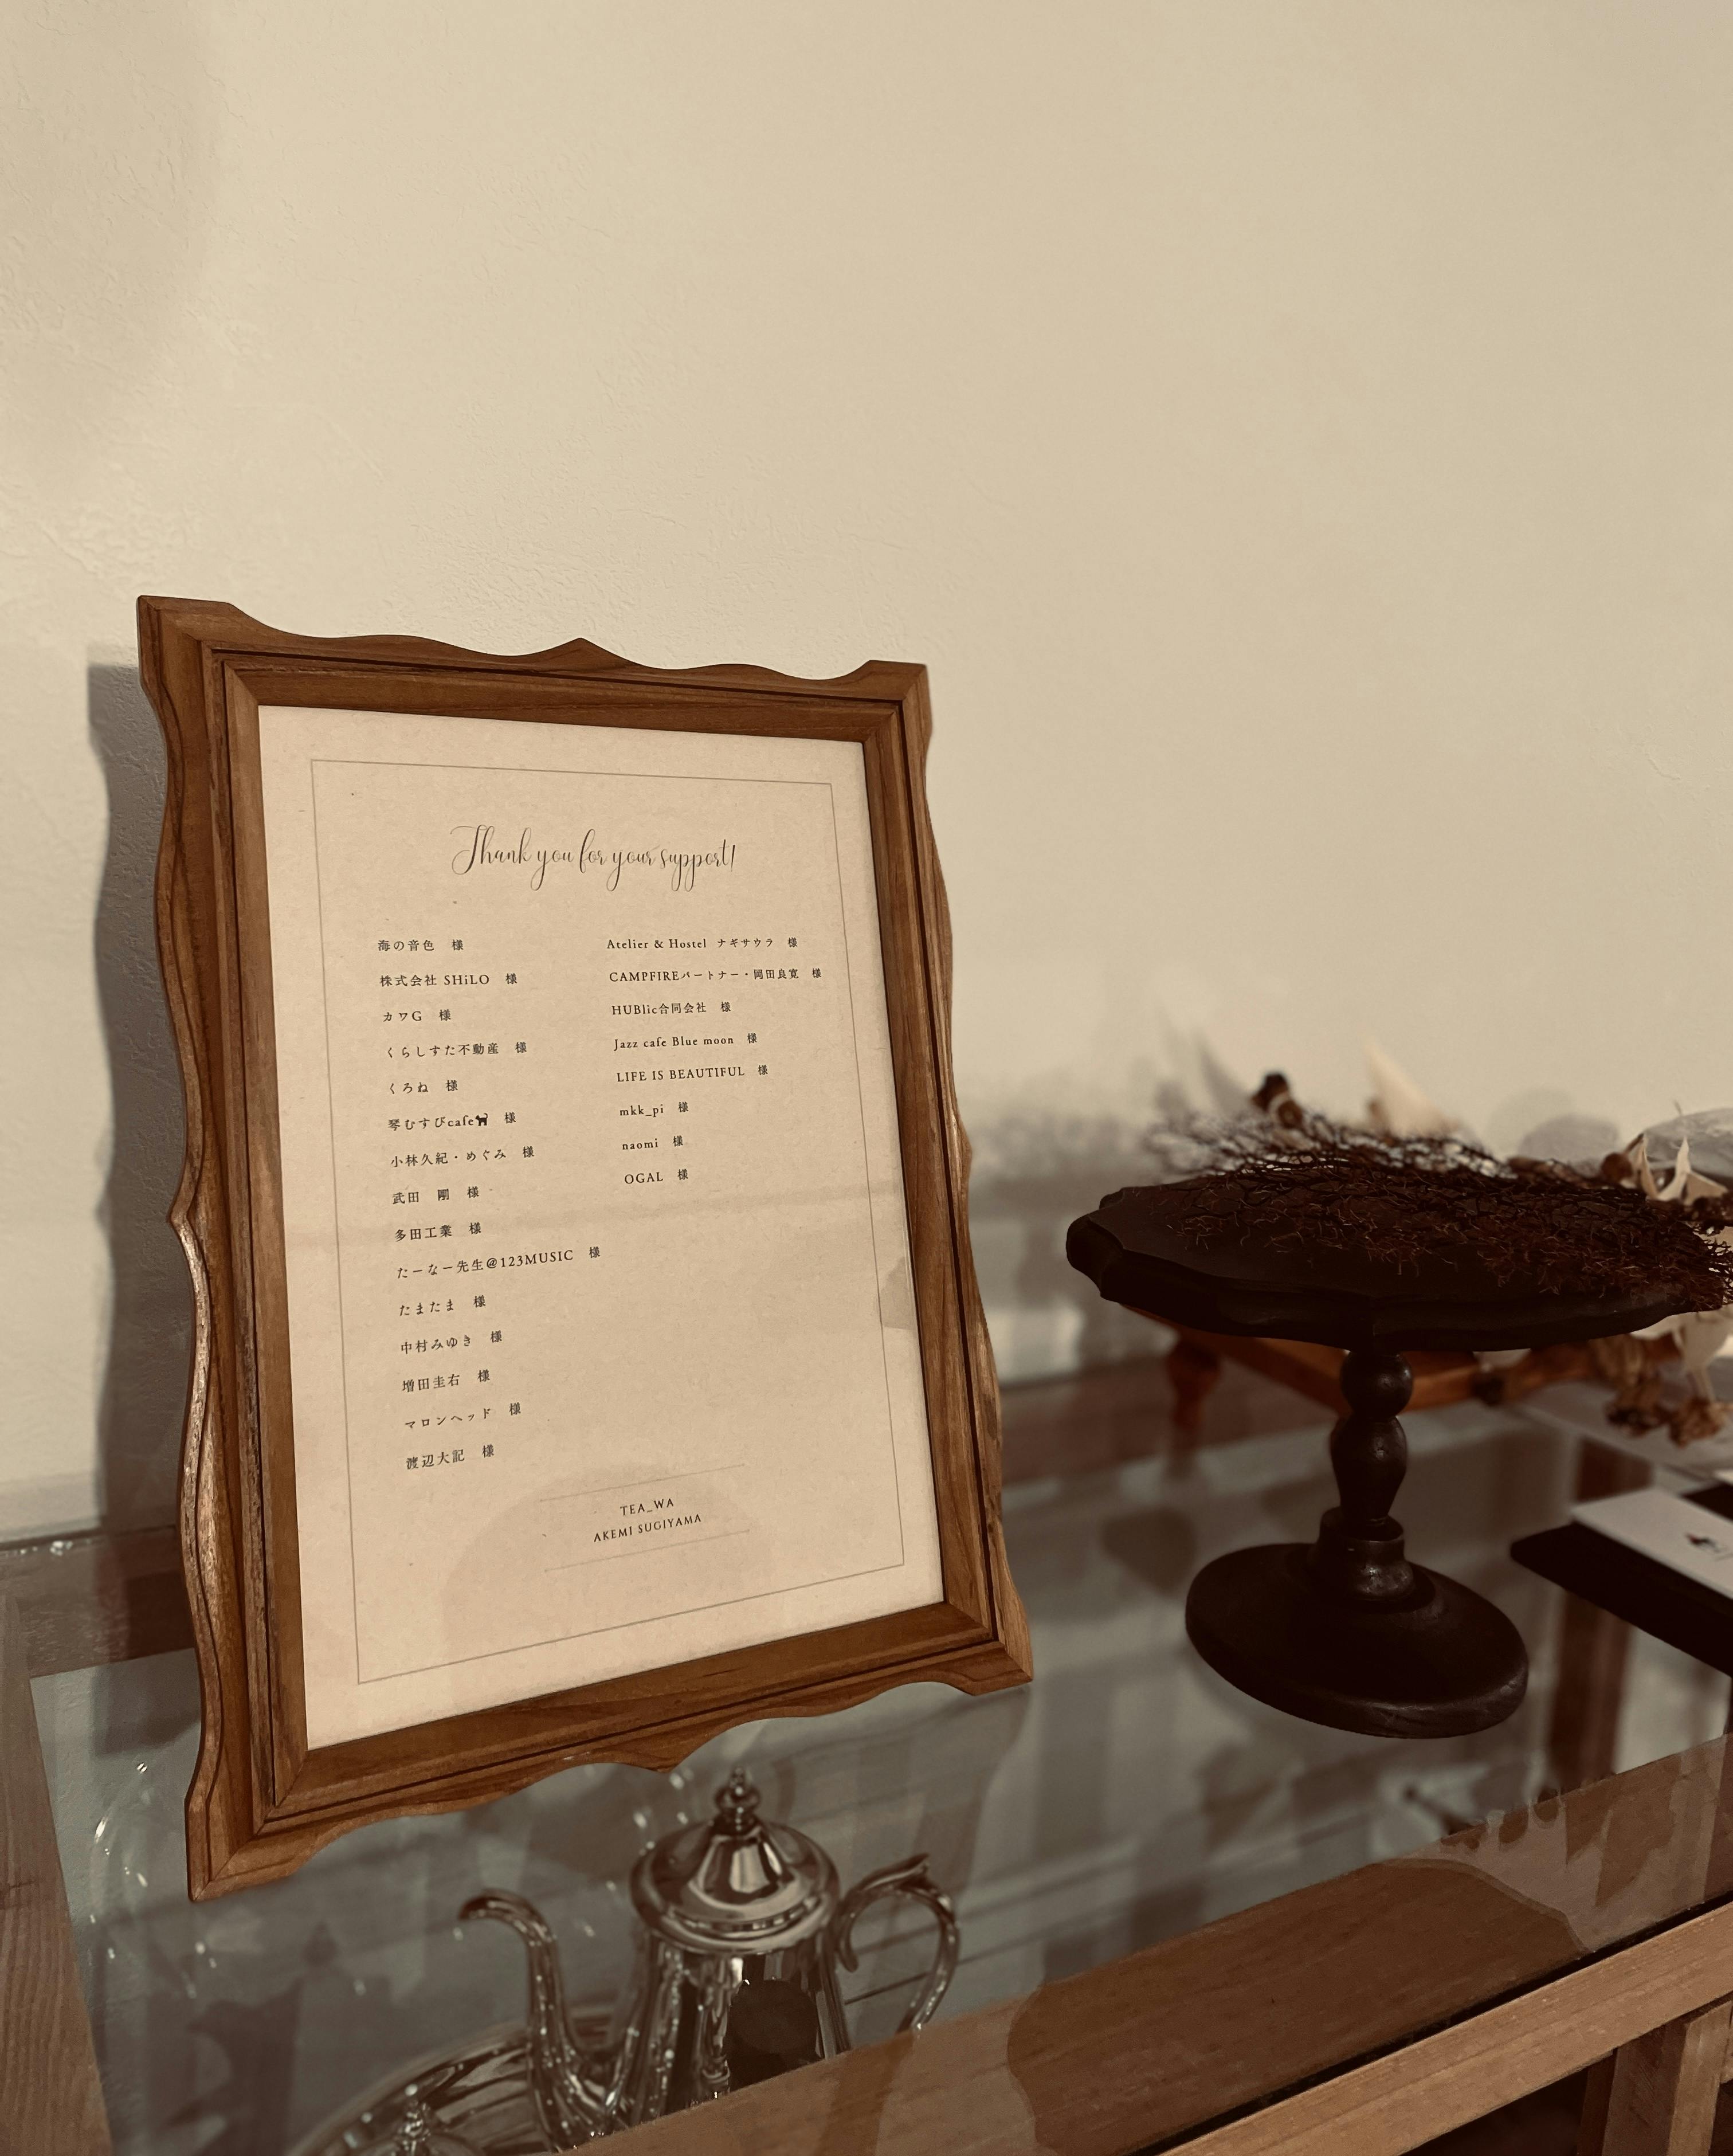 Thank you for your support!
海の音色 様
株式会社 SHiLO 様
カワG 様
くらしすた不動産 様
くろね 様
琴むすびcafe🐈‍⬛ 様
小林久紀・めぐみ 様
武田 剛 様
多田工業 様
たーなー先生@123MUSIC 様
たまたま 様
中村みゆき 様
増田圭右 様
マロンヘッド 様
渡辺大記 様
Atelier & Hostel ナギサウラ 様
CAMPFIREパートナー・岡田良寛 様
HUBlic合同会社 様
Jazz cafe Blue moon 様
LIFE IS BEAUTIFUL 様
mkk_pi 様
naomi 様
OGAL 様
TEA_WA
AKEMI SUGIYAMA